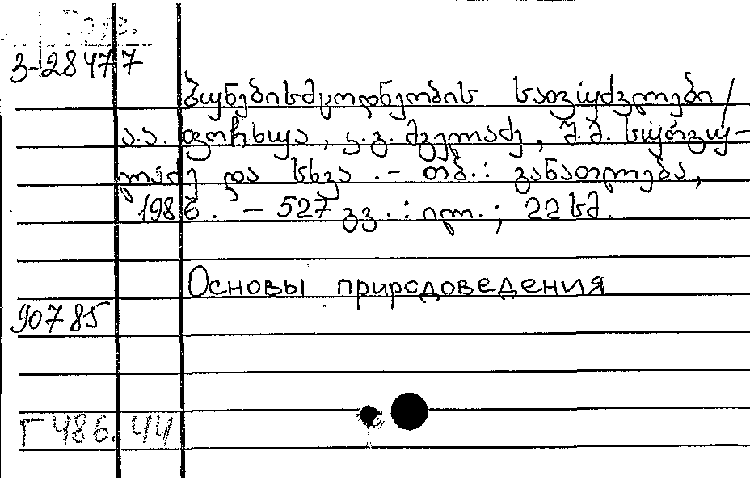 3-28477
ბუნებისმცოდნეობის საფუძვლები /
ა.ა. ფორჩხუა, კ.გ. მჭედლიძე, შ.მ. სიურგუ-
ლაძე და სხვა. - თბ.: განათლება,
1986. - 527 გვ.: ილ.; 22 სმ.
Основы природоведения
90785
Г 486.44